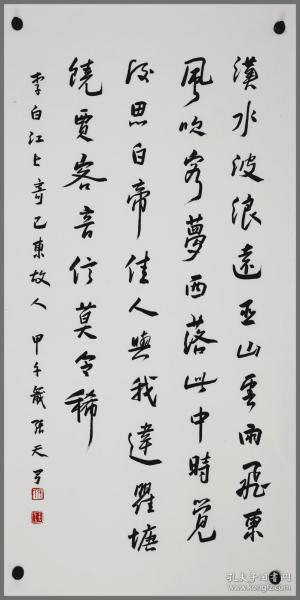 漢水波浪遠巫山雲雨飛東
風吹客夢西落此中時覺
後思白帝佳人與我違瞿塘
饒賈客音信莫令稀
李白江上寄巴東故人 甲午歲張天弓
孔夫子旧书网